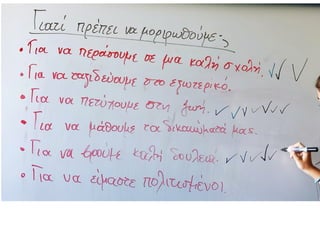 Γιατί πρέπει να μορφωθούμε;
• Για να περάσουμε σε μια καλή σχολή.
• Για να ταξιδεύουμε στο εξωτερικό.
• Για να πετύχουμε στη ζωή.
• Για να μάθουμε τα δικαιώματά μας.
• Για να βρούμε καλή δουλειά.
• Για να είμαστε πολιτισμένοι.